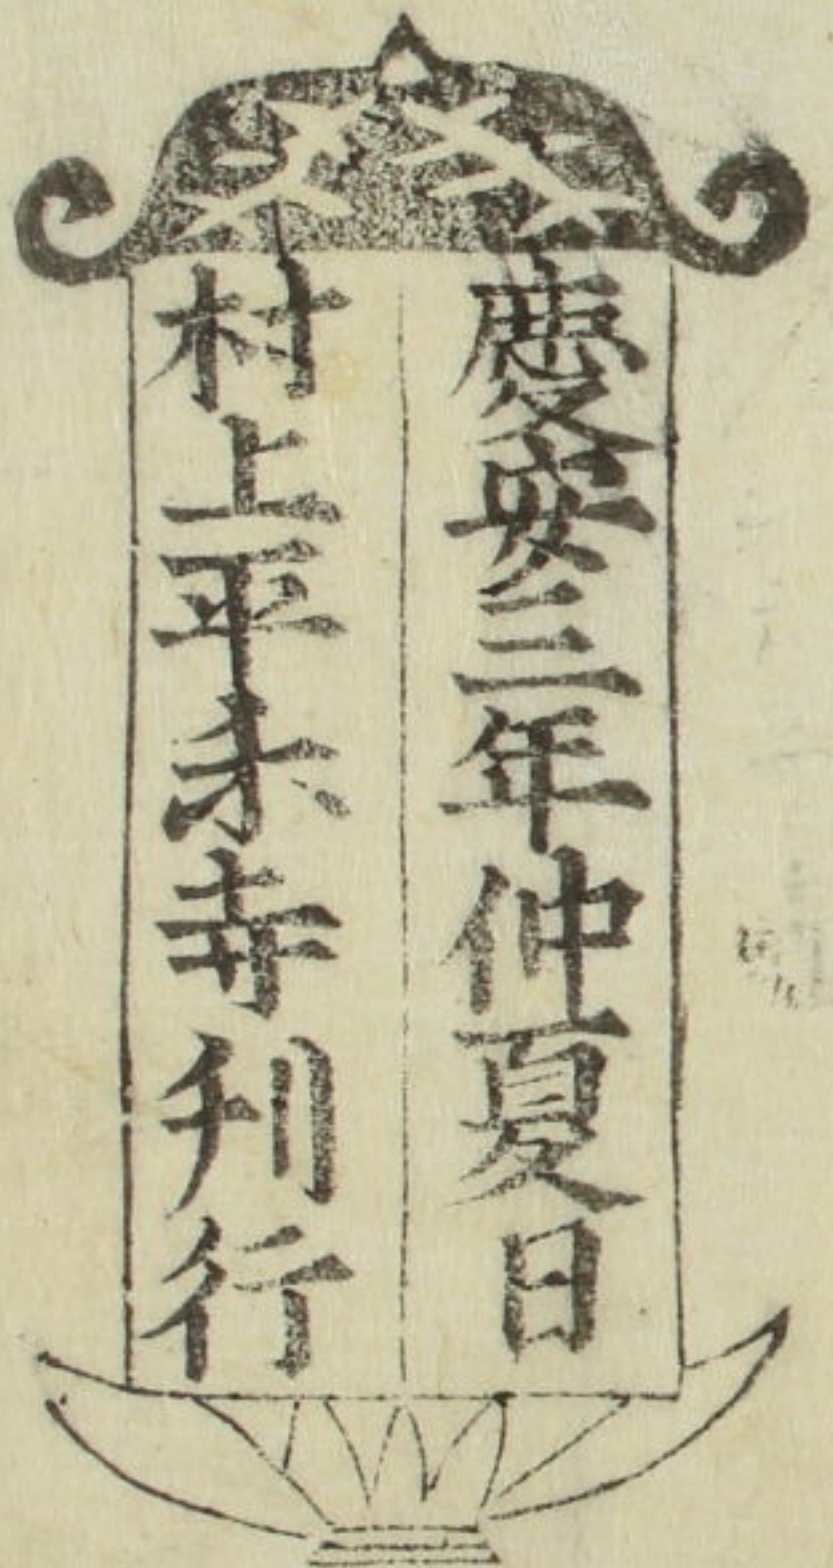 慶安三年仲夏日
村上平乐寺刋行